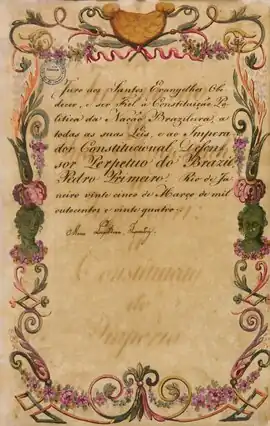 Juro aos Santos Evangelhos Obe
decer, e ser Fiel á Constituição Po
litica da Nação Brazileira, a
todas as suas Leis, e ao Impera
dor Constitucional, Defen
sor Perpetuo do Brazil
Pedro Primeiro. Rio de Ja
neiro vinte cinco de Março de mil
outocentos e vinte quatro.
Constituição
do
Imperio